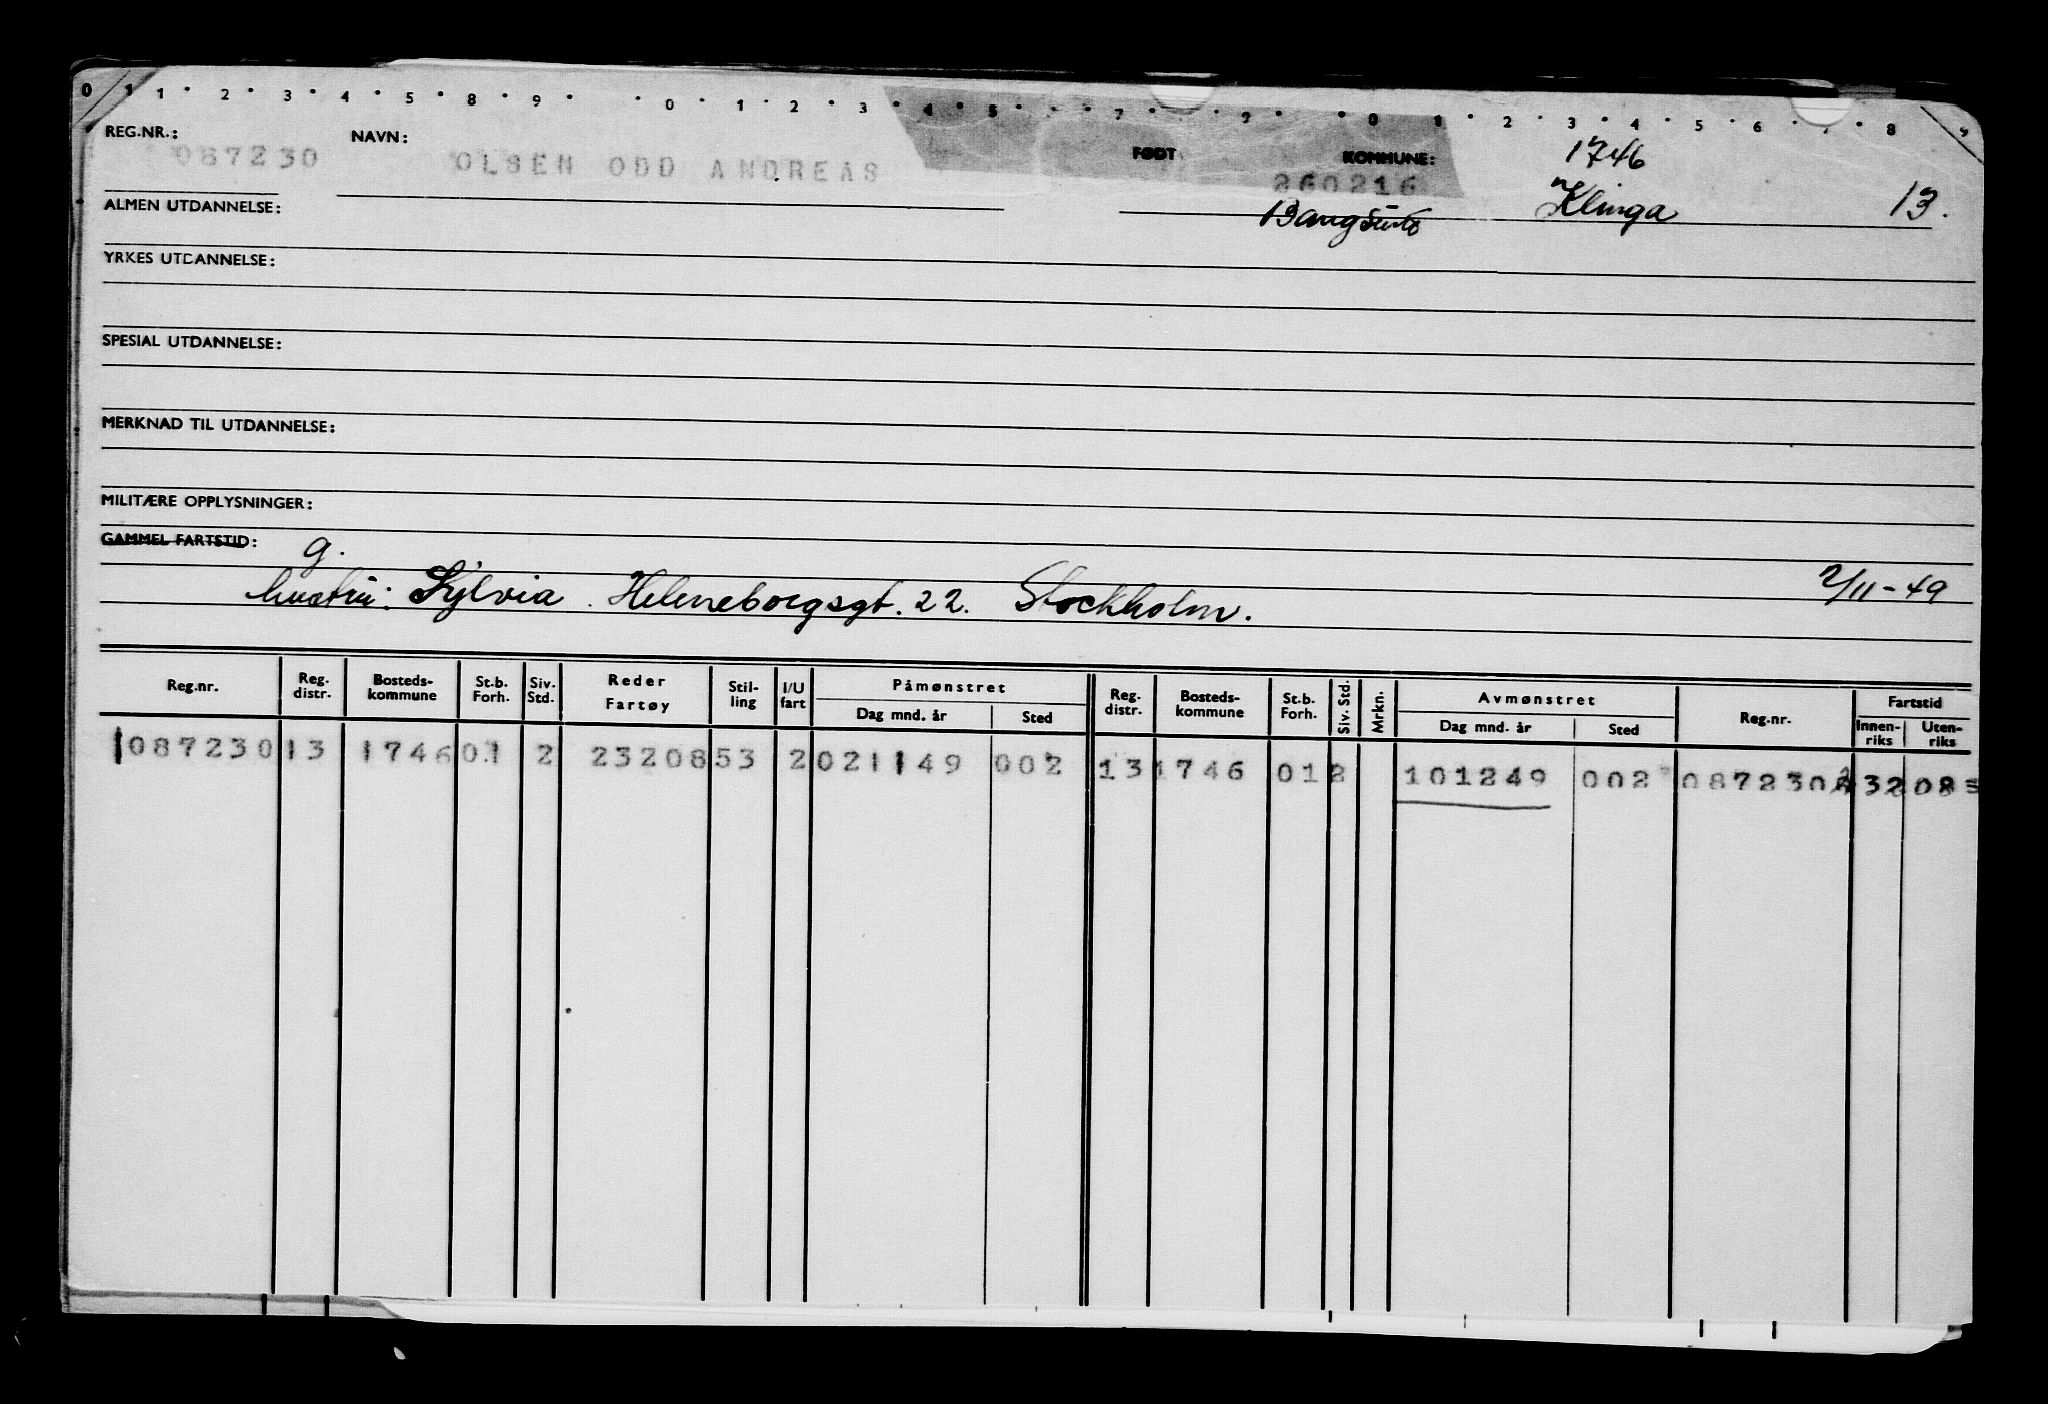 0 1 1 • 2 • 3 • 4 • 5 • 8 • 9 • • 0 • 1 • 2 • 3 • 4 • 5 • • 7 • • 9 • • 0 1 • 2 • 3 • 4 • 5 6 • 7 • 8 9
REG.NR.: NAVN: FØDT KOMMUNE: 1746
087230 OLSEN ODD ANDREAS 260216
ALMEN UTDANNELSE: Bangsund Klinga 13.
YRKES UTDANNELSE:
SPESIAL UTDANNELSE:
MERKNAD TIL UTDANNELSE:
MILITÆRE OPPLYSNINGER:
GAMMEL FARTSTID: g.
hustru: Sylvia. Heleneborgsgt. 22. Stockholm. 2/11-49
Reg.nr. Reg. distr. Bosteds-kommune St.b. Forh. Siv. Std. Reder Fartøy Stil-ling I/U fart Påmønstret Dag mnd. år Sted Reg. distr. Bosteds-kommune St.b. Forh. Siv. Std. Mrkn. Avmønstret Dag mnd. år Sted Reg.nr. Fartstid Innen-riks Uten-riks
1087230 13 1746 01 2 23208 53 2 021149 002 13 1746 01 2 101249 002 087230 32 08